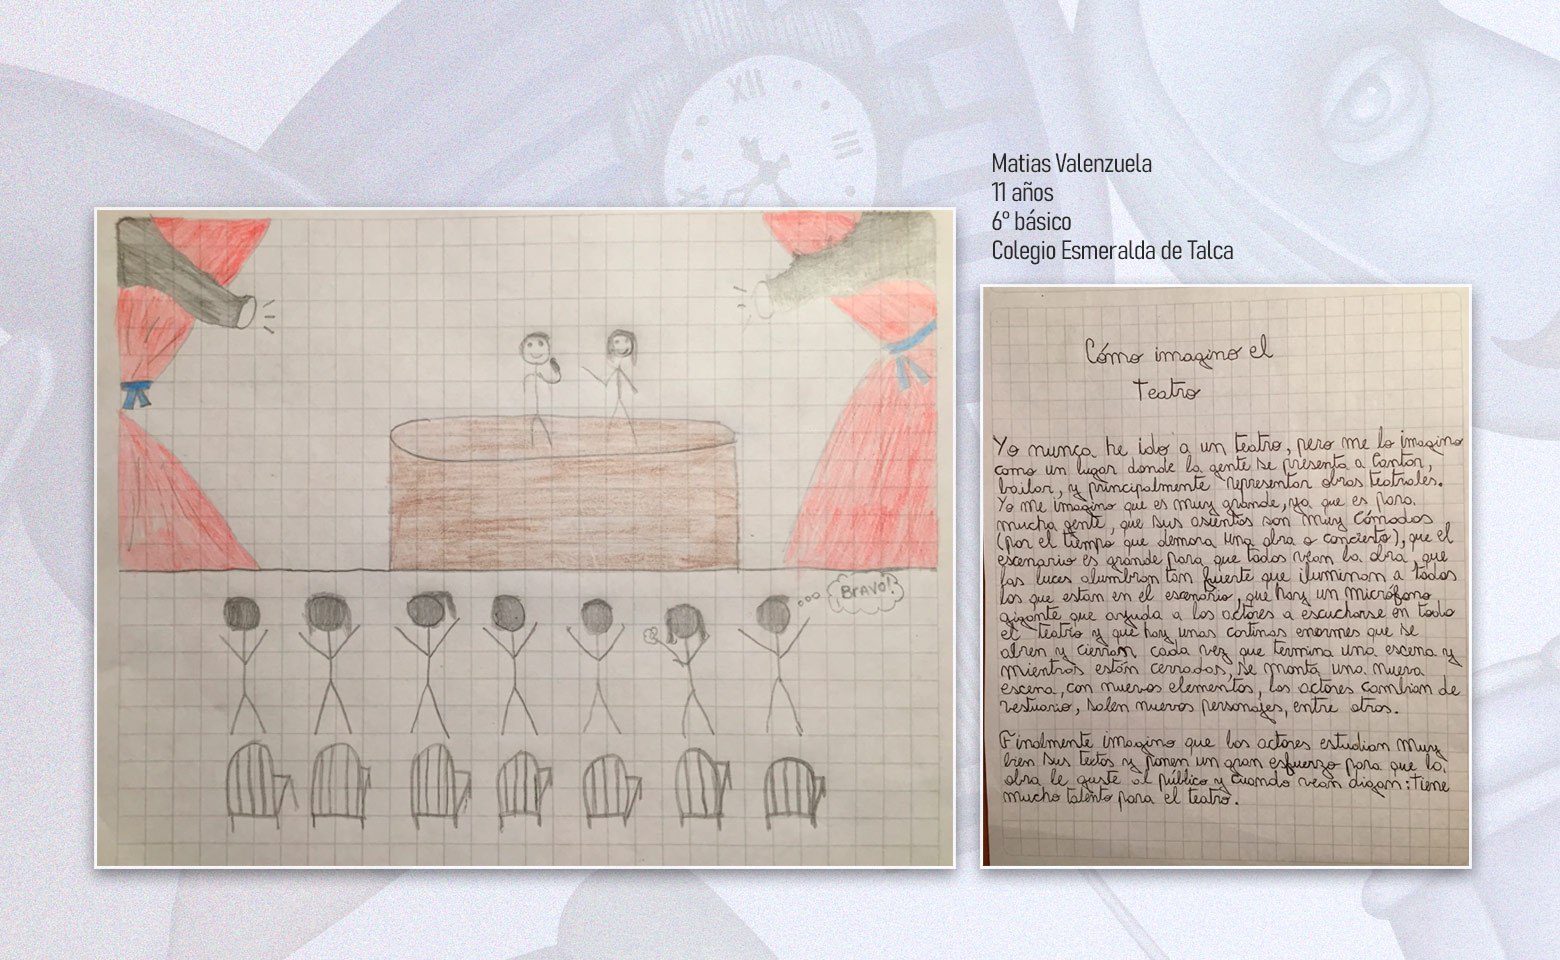 Matias Valenzuela
11 años
6º básico
Colegio Esmeralda de Talca
BRAVO!
Cómo imagino el
Teatro
Yo nunca he ido a un teatro, pero me lo imagino
como un lugar donde la gente se presenta a Cantar,
bailar, y principalmente representar obras teatrales.
Yo me imagino que es muy grande, ya que es para
mucha gente, que sus asientos son muy cómodos
(por el tiempo que demora una obra o concierto), que el
escenario es grande para que todos vean la obra, que
las luces alumbran tan fuerte que iluminan a todos
los que estan en el escenario, que hay un micrófono
gigante que ayuda a los actores a escucharse en todo
el teatro y que hay unas cortinas enormes que se
abren y cierran cada vez que termina una escena y
mientras están cerradas, se monta una nueva
escena, con nuevos elementos, los actores cambian de
vestuario, salen nuevos personajes, entre otros.
Finalmente imagino que los actores estudian muy
bien sus textos y ponen un gran esfuerzo para que la
obra le guste al público y cuando vean digan: tiene
mucho talento para el teatro.